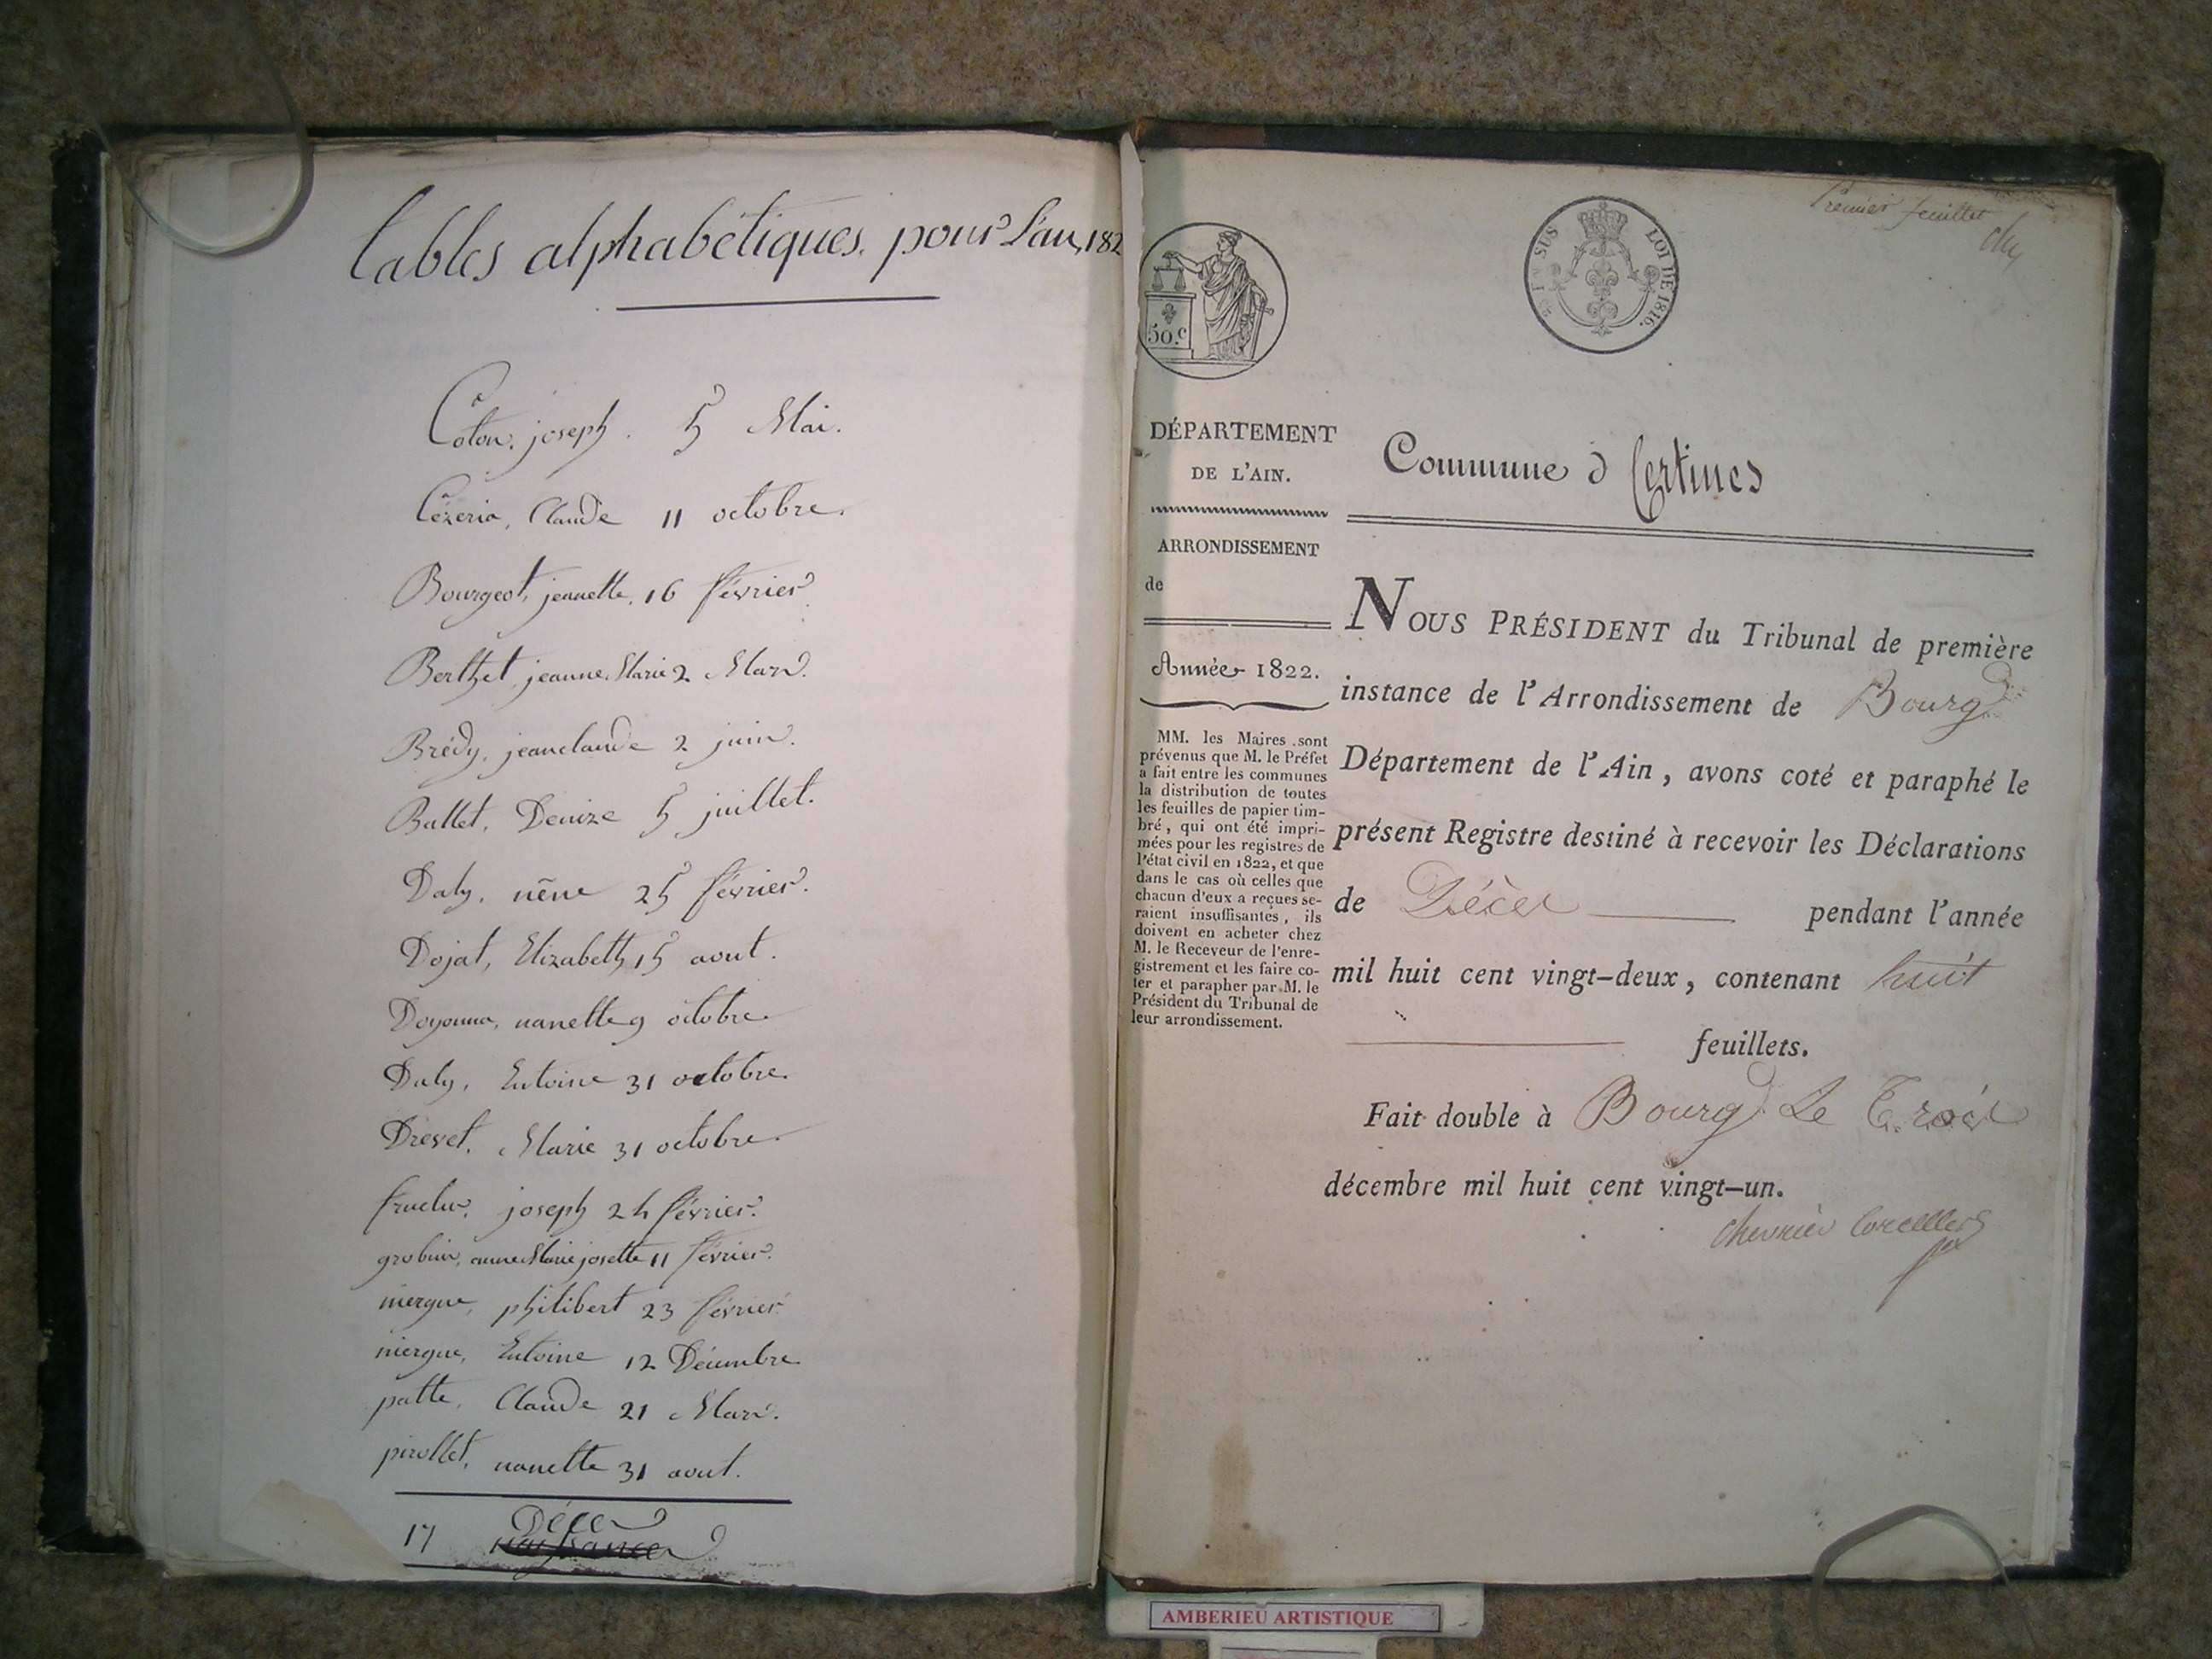 tables alphabétiques. pour l'an, 182
Coton. joseph. 5 Mai.
Cézeria, Claude 11 octobre.
Bourgeot, jeanette, 16 février
Berthet, jeanne Marie 2 Mars.
Brédy, jeanclaude 2 juin.
Ballet, Denize 5 juillet.
Daly, 25 février.
Dojat, Elizabeth, 15 aout.
Doyonna, nanette 9 octobre.
Daly, Entoine 31 octobre.
Drevet, Marie 31 octobre.
joseph 24 février.
grobuin, anne Marie josette 11 février.
mergue, philibert 23 février
mergue, Entoine 12 Décembre
patte, Claude 21 Mars.
pirollet, nanette 31 aout.
17 Décès
naissances
Premier feuillet
50.c
LOI DE 1816.
DÉPARTEMENT
DE L'AIN.
Commune d Certines
ARRONDISSEMENT
de
Année 1822.
MM. les Maires sont
prévenus que M. le Préfet
a fait entre les communes
la distribution de toutes
les feuilles de papier tim-
bré, qui ont été impri-
mées pour les registres de
l'état civil en 1822, et que
dans le cas où celles que
chacun d'eux a reçues se-
raient insuffisantes, ils
doivent en acheter chez
M. le Receveur de l'enre-
gistrement et les faire co-
ter et parapher par M. le
Président du Tribunal de
leur arrondissement.
NOUS PRÉSIDENT du Tribunal de première
instance de l'Arrondissement de Bourg
Département de l'Ain, avons coté et paraphé le
présent Registre destiné à recevoir les Déclarations
de Décès pendant l'année
mil huit cent vingt-deux, contenant huit
feuillets.
Fait double à Bourg Le Trois
décembre mil huit cent vingt-un.
chevrier Corcelles
AMBERIEU ARTISTIQUE